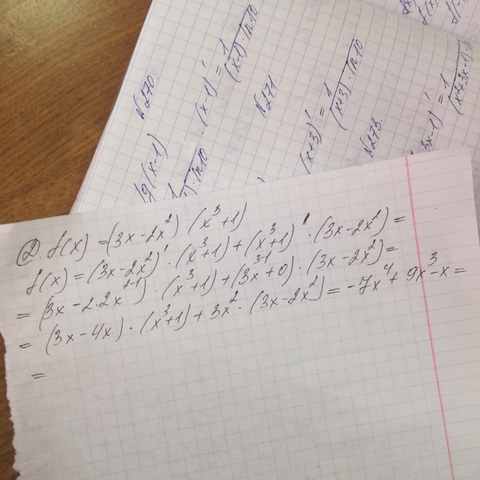 ② f(x) = (3x-2x²) (x³+1)
f(x) = (3x-2x²)' · (x³+1) + (x³+1)' · (3x-2x²) =
= (3x-2·2x²⁻¹) · (x³+1) + (3x³⁻¹+0) · (3x-2x²) =
= (3x-4x) · (x³+1) + 3x² · (3x-2x²) = -7x⁴ + 9x³ - x =
=
N270
lg(x-1)
· (x-1)' = 1/((x-1)·ln10)
N271
(x+3)' = 1/((x+3)·ln10)
N273